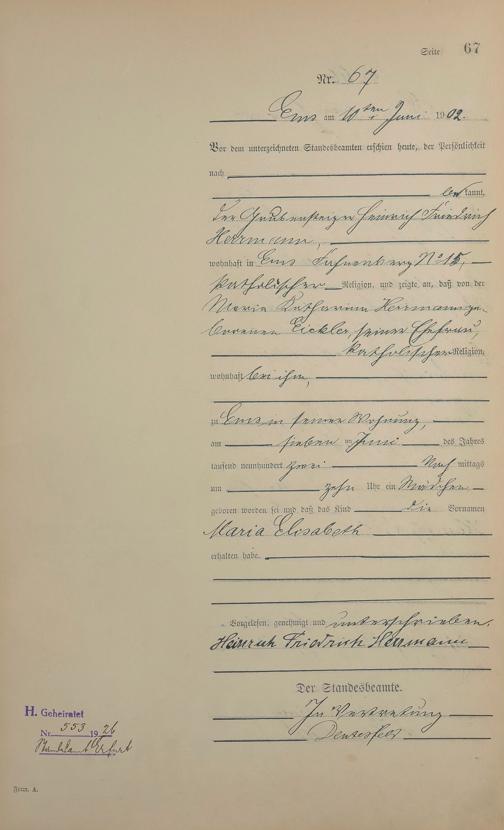 Seite 67
Nr. 67
Ems am 10ten Juni 1902.
Vor dem unterzeichneten Standesbeamten erschien heute, der Persönlichkeit
nach
bekannt,
der Grubensteiger Heinrich Friedrich
Herrmann,
wohnhaft in Ems No 15,
katholischer Religion, und zeigte an, daß von der
Maria Katharina Herrmann ge-
borenen Eickler, seiner Ehefrau,
katholischer Religion,
wohnhaft bei ihm,
zu Ems in seiner Wohnung,
am sieben ten Juni des Jahres
tausend neunhundert zwei Nach mittags
um zehn Uhr ein Mädchen
geboren worden sei und daß das Kind die Vornamen
Maria Elisabeth
erhalten habe.
Vorgelesen, genehmigt und unterschrieben.
Heinrich Friedrich Herrmann
Der Standesbeamte.
In Vertretung
H. Geheiratet
Nr. 553 1926
Standesamt Erfurt
Form. A.